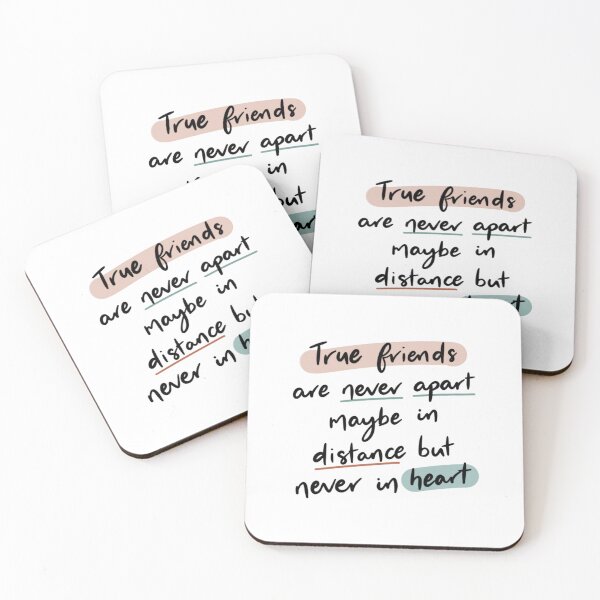 True friends
are never apart
in
but
True friends
are never apart
maybe in
distance but
True friends
are never apart
maybe in
distance but
never in
True friends
are never apart
maybe in
distance but
never in heart